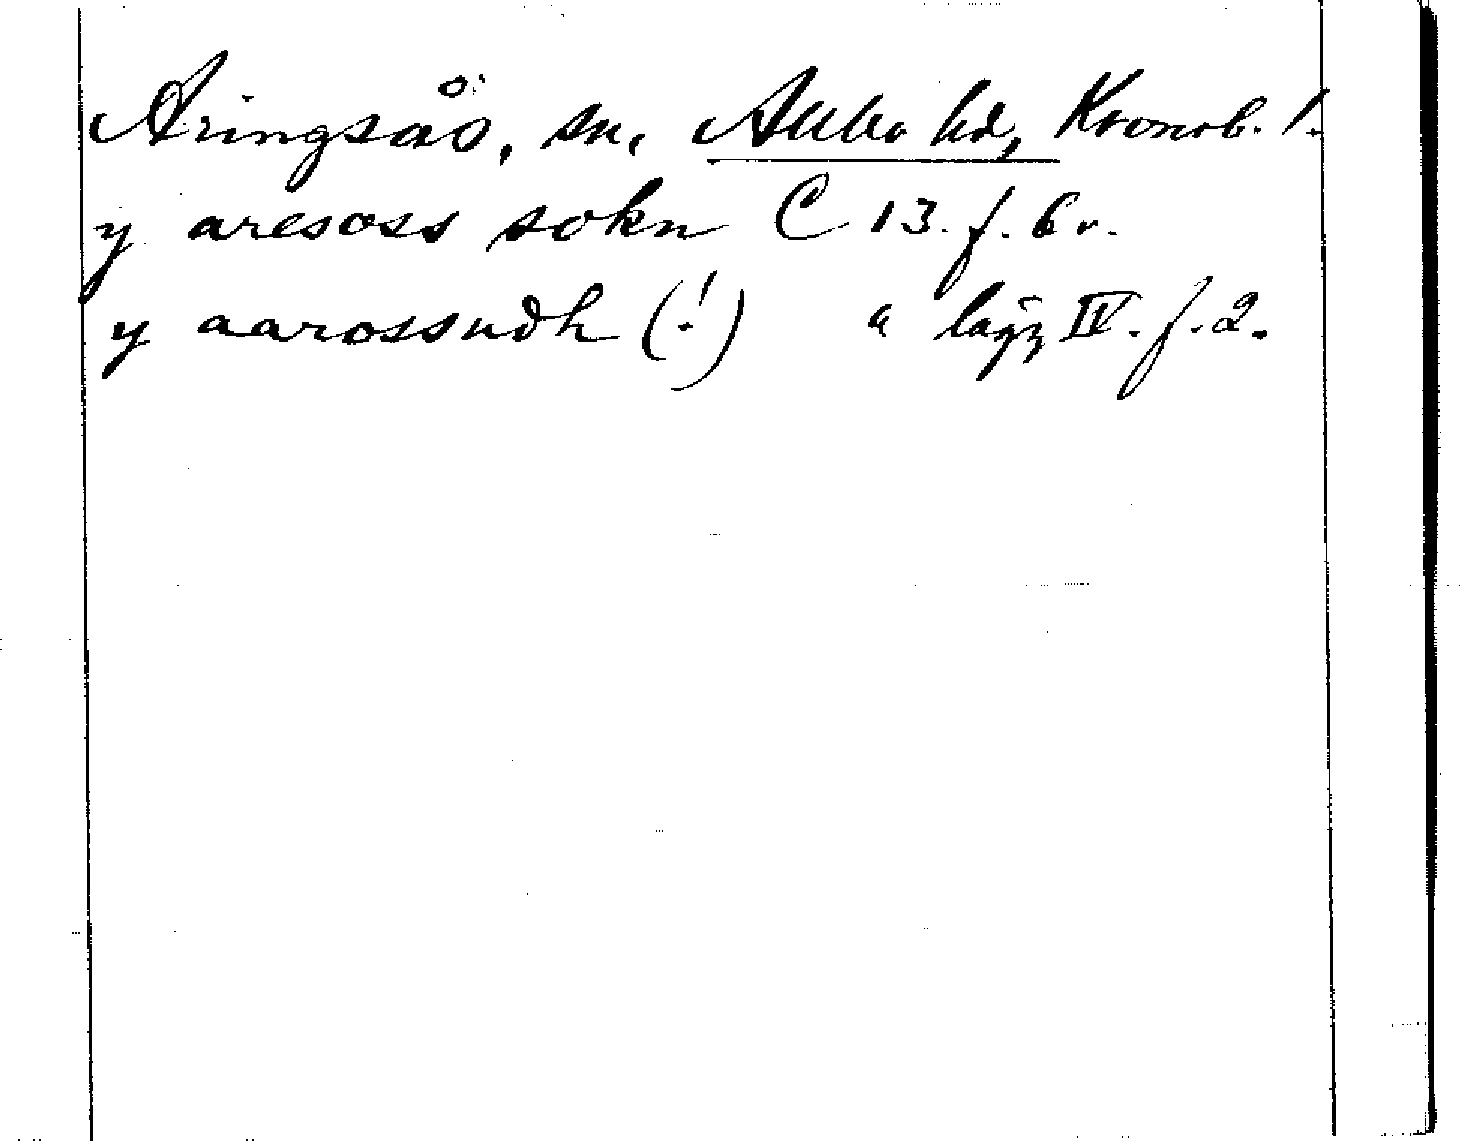 Aringsås, sn, Allbo hd, Kronob. l.
y aresoss sokn C 13. f. 6 v.
y aarossudh (!) " lägg IV. f. 2.